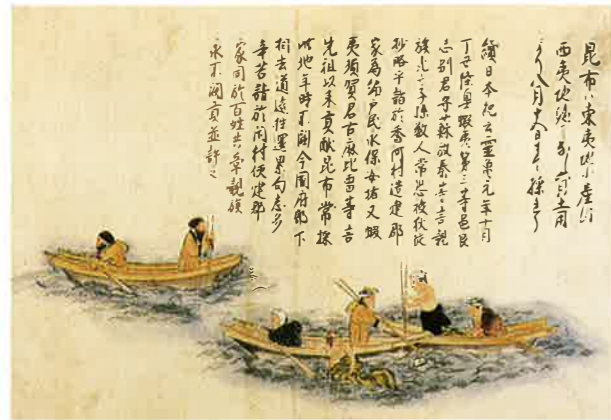 昆布ハ東夷地小産
西夷地六月土用
より八月十五日まて採
續日本紀云靈亀元年十月
丁丑陸奥蝦夷第三等邑良
志別君宇蘇弥奈等言親
族死亡子孫数人常恐被狄徒
抄略乎請於香河村造建郡
家為編戸民永保安堵又蝦
夷須賀君古麻比留等言
先祖以来貢献昆布常採
此地年時不闕今國府郭下
相去道遠往還累旬甚多
辛苦請於閇村便建郡
家同於百姓共率親族
永不闕貢並許之